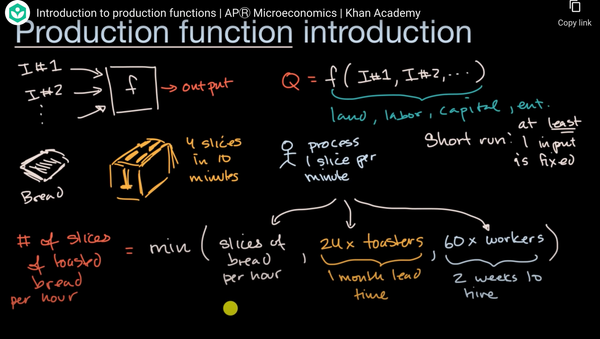 Introduction to production functions | AP® Microeconomics | Khan Academy
Copy link
Production function introduction
I#1
I#2
⋮
f
→ output
Q = f(I#1, I#2, ...)
land, labor, capital, ent.
Short run: at least
1 input
is fixed
Bread
4 slices
in 10
minutes
process
1 slice per
minute
# of slices
of toasted
bread
per hour
= min ( slices of
bread
per hour
, 24 x toasters
1 month lead
time
, 60 x workers )
2 weeks to
hire